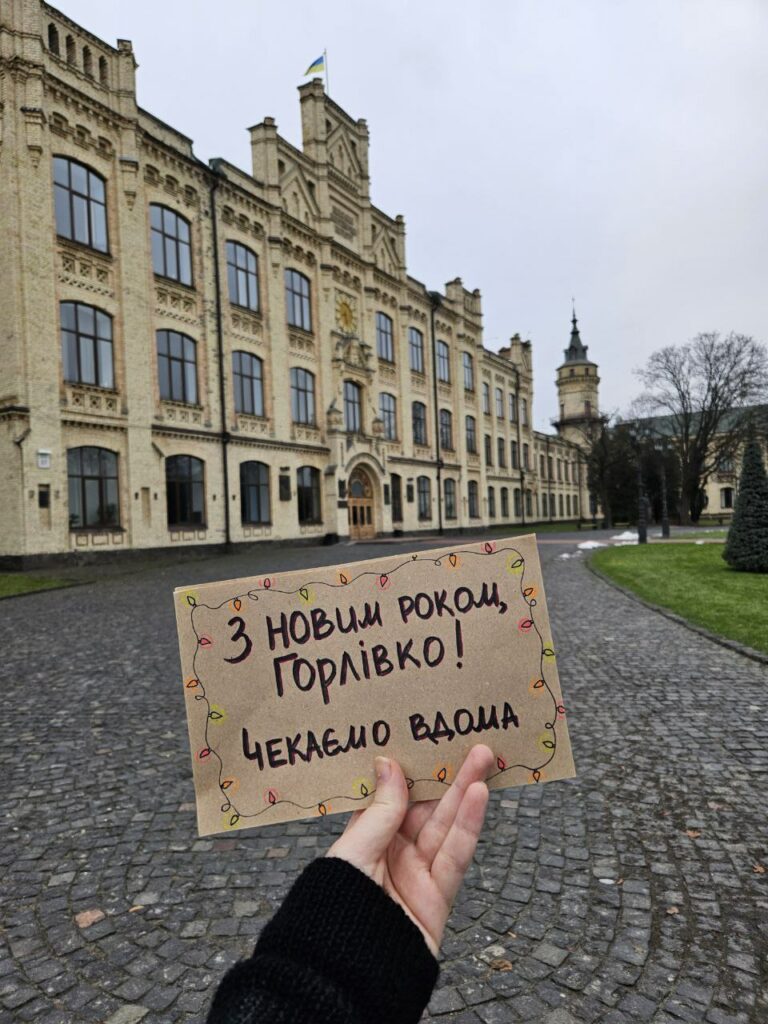 З НОВИМ РОКОМ,
ГОРЛІВКО!
ЧЕКАЄМО ВДОМА